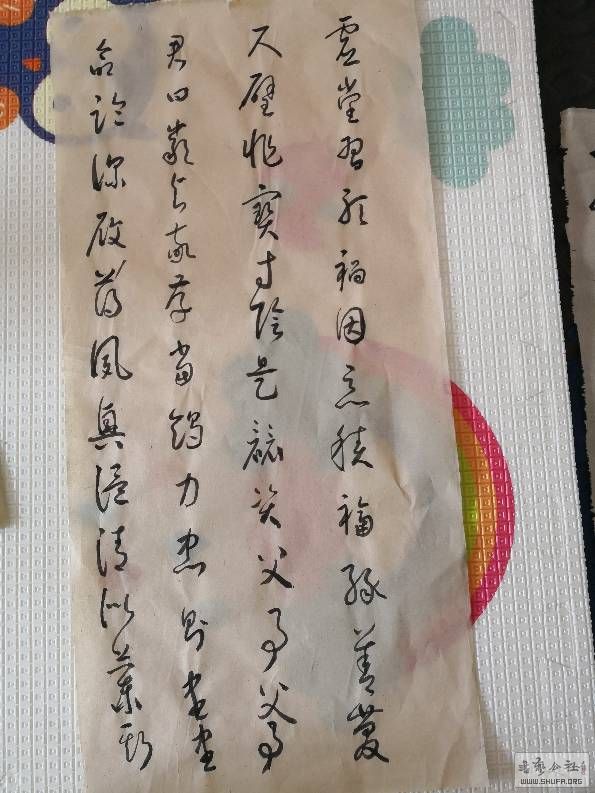 虛堂習聽禍因惡積福緣善慶
尺璧非寶寸陰是競資父事父事
君曰嚴與敬孝當竭力忠則盡盡
命臨深履薄夙興溫清似蘭斯
書法公社
WWW.SHUFA.ORG